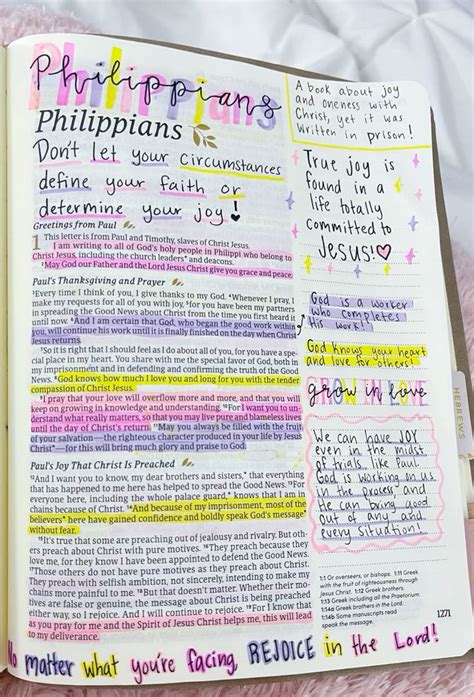 Philippians
Philippians
Philippians
Don't let your circumstances
define your faith or
determine your joy!
Greetings from Paul
1 This letter is from Paul and Timothy, slaves of Christ Jesus.
I am writing to all of God's holy people in Philippi who belong to
Christ Jesus, including the church leaders* and deacons.
2 May God our Father and the Lord Jesus Christ give you grace and peace.
Paul's Thanksgiving and Prayer
3 Every time I think of you, I give thanks to my God. 4 Whenever I pray, I
make my requests for all of you with joy, 5 for you have been my partners
in spreading the Good News about Christ from the time you first heard it
until now. 6 And I am certain that God, who began the good work within
you, will continue his work until it is finally finished on the day when Christ
Jesus returns.
7 So it is right that I should feel as I do about all of you, for you have a spe-
cial place in my heart. You share with me the special favor of God, both in
my imprisonment and in defending and confirming the truth of the Good
News. 8 God knows how much I love you and long for you with the tender
compassion of Christ Jesus.
9 I pray that your love will overflow more and more, and that you will
keep on growing in knowledge and understanding. 10 For I want you to
understand what really matters, so that you may live pure and blameless lives
until the day of Christ's return. 11 May you always be filled with the fruit
of your salvation—the righteous character produced in your life by Jesus
Christ*—for this will bring much glory and praise to God.
Paul's Joy That Christ Is Preached
12 And I want you to know, my dear brothers and sisters,* that everything
that has happened to me here has helped to spread the Good News. 13 For
everyone here, including the whole palace guard,* knows that I am in
chains because of Christ. 14 And because of my imprisonment, most of the
believers* here have gained confidence and boldly speak God's message*
without fear.
15 It's true that some are preaching out of jealousy and rivalry. But oth-
ers preach about Christ with pure motives. 16 They preach because they
love me, for they know I have been appointed to defend the Good News.
17 Those others do not have pure motives as they preach about Christ.
They preach with selfish ambition, not sincerely, intending to make my
chains more painful to me. 18 But that doesn't matter. Whether their mo-
tives are false or genuine, the message about Christ is being preached
either way, so I rejoice. And I will continue to rejoice. 19 For I know that
as you pray for me and the Spirit of Jesus Christ helps me, this will lead
to my deliverance.
A book about joy
and oneness with
Christ, yet it was
written in prison!
True joy is
found in a
life totally
committed to
Jesus!
God is a worker
who completes
His work!
God knows your heart
and love for others!
grow in love
We can have JOY
even in the midst
of trials, like Paul.
God is working in us
in the process, and
He can bring good
out of any and
every situation!
HEBREWS
1:1 Or overseers, or bishops. 1:11 Greek
with the fruit of righteousness through
Jesus Christ. 1:12 Greek brothers.
1:13 Greek including all the Praetorium.
1:14a Greek brothers in the Lord.
1:14b Some manuscripts read
speak the message.
1271
No matter what you're facing, REJOICE in the Lord!